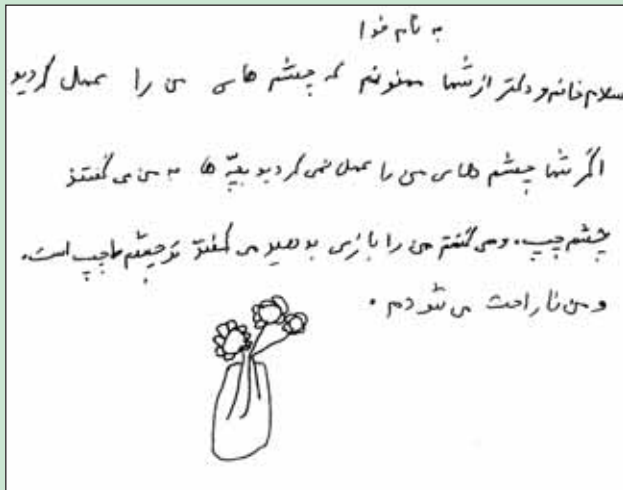 به نام خدا
سلام خانم دکتر از شما ممنونم که چشم های من را عمل کردید
اگر شما چشم های من را عمل نمی کردید بچّه ها به من می گفتند
چشم چپ. و می گفتم من را بازی بدهید می گفتند تو چشم ها چپ است.
و من ناراحت می شودم.